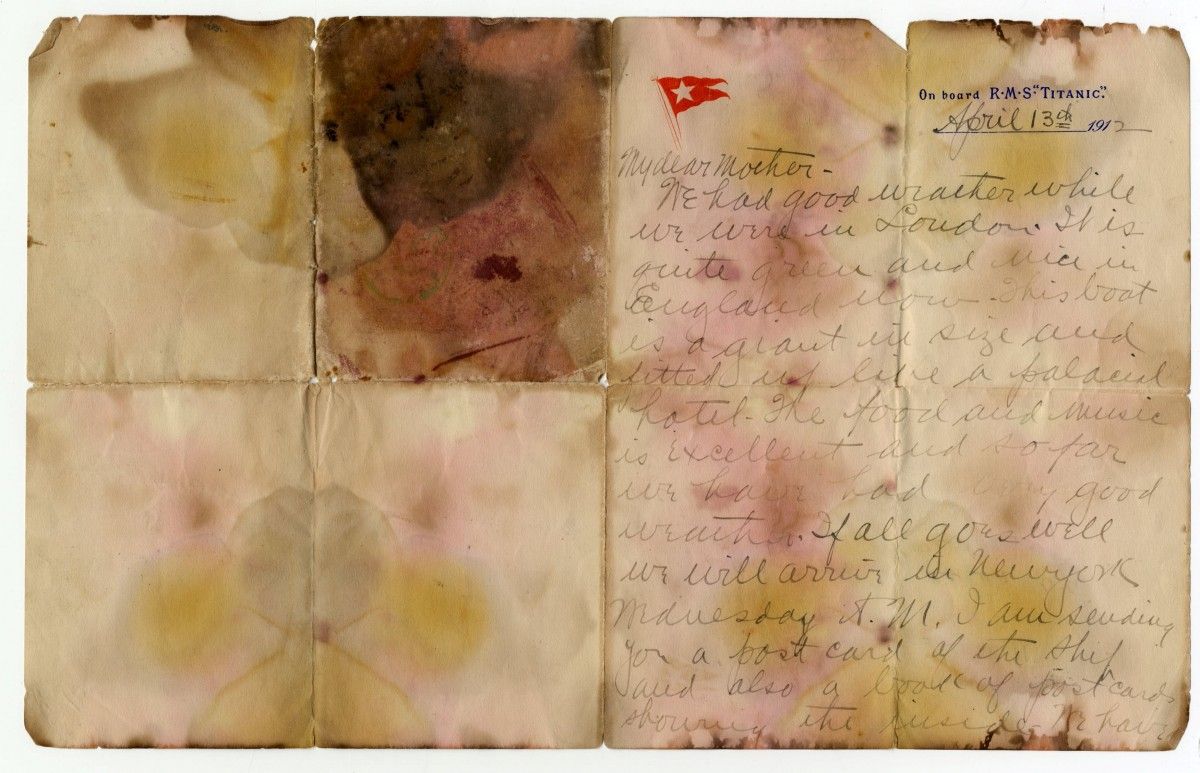 On board R·M·S "TITANIC".
April 13th 1912
My dear Mother-
We had good weather while
we were in London. It is
quite green and nice in
England now. This boat
is a giant in size and
fitted up like a palacial
hotel. The food and music
is excellent and so far
we have had very good
weather. If all goes well
we will arrive in New York
Wednesday A.M. I am sending
you a post card of the ship
and also a book of post cards
showing the inside. We have